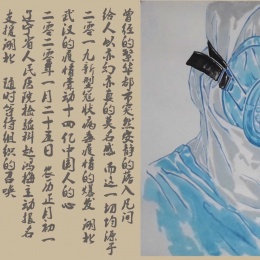 曾经的繁华都市突然安静的落入凡间
给人以亦幻亦真的莫名感 而这一切均源于
二零一九新型冠状病毒疫情的爆发 湖北
武汉的疫情牵动十四亿中国人的心
二零二零年一月二十五日 农历正月初一
辽宁省人民医院检验科赵鸿梅主动报名
支援湖北 随时等待组织的召唤